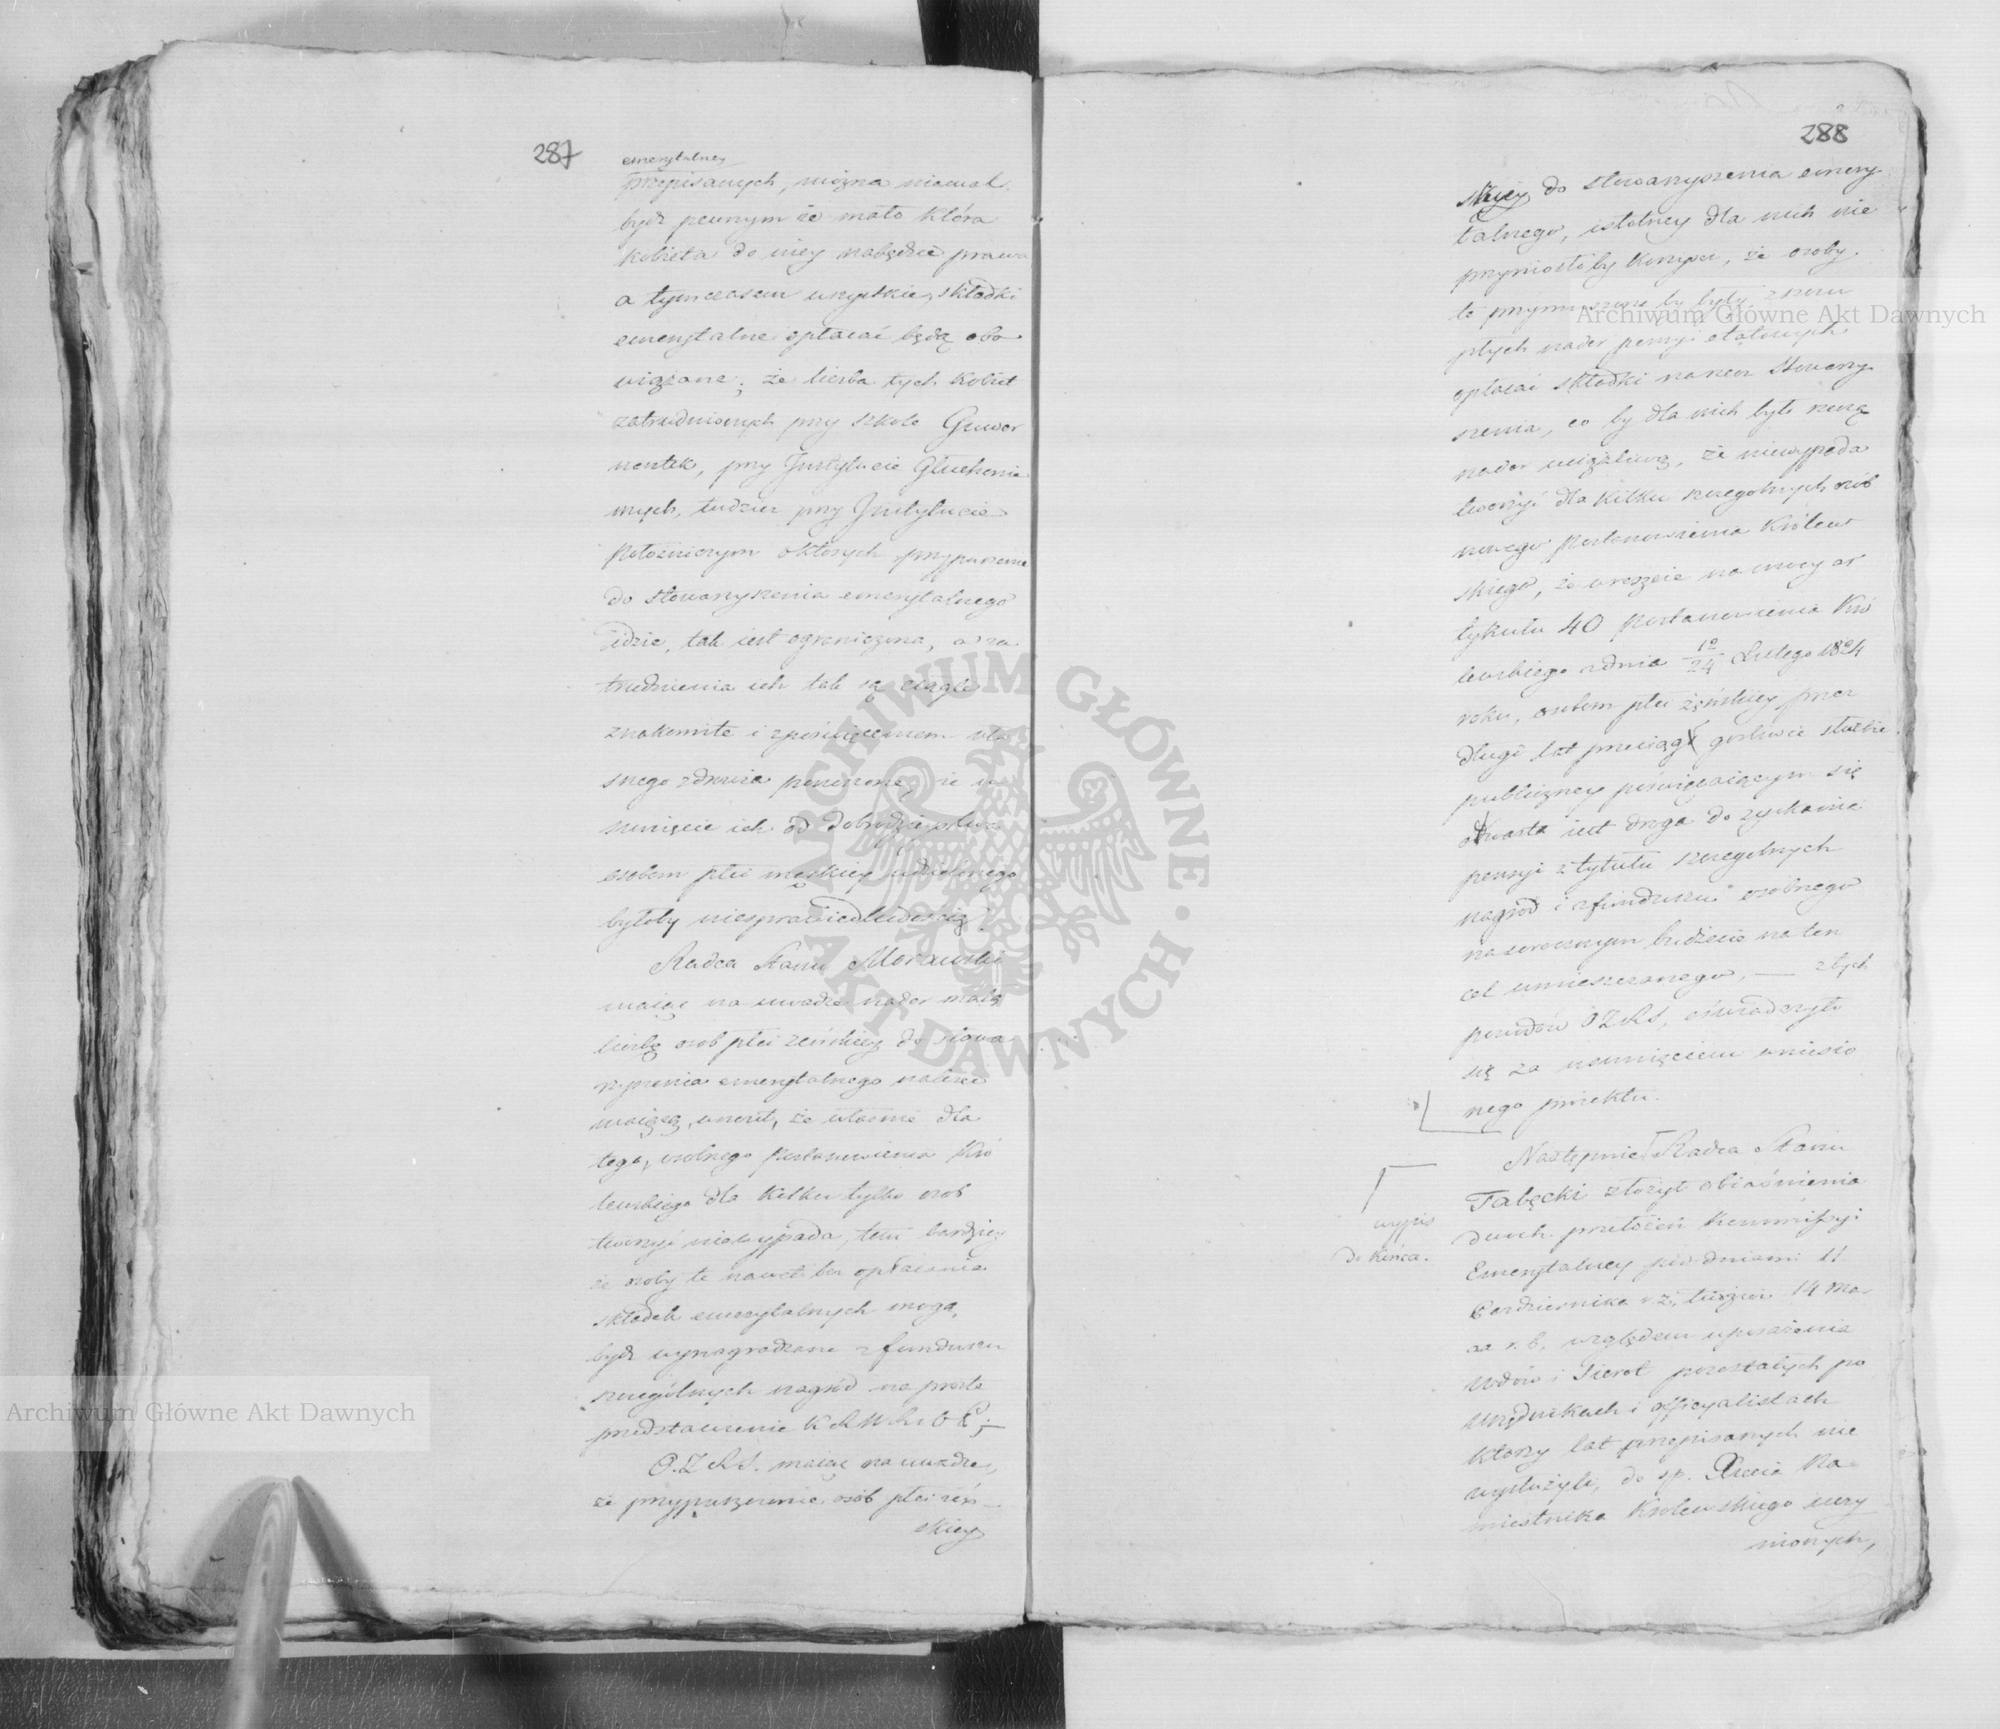 287
emerytalney
przepisanych, można niemal
bydź pewnym że mało która
kobieta do niey nabędzie prawa
a tymczasem wszystkie składki
emerytalne opłacać będą obo
wiązane; że liczba tych kobiet
zatrudnionych przy szkole Guwer
nantek, przy Instytucie Głuchonie
mych, tudzież przy Instytucie
Położniczym o których przypuszczenie
do stowarzyszenia emerytalnego
idzie, tak iest ograniczona, a za
trudnienia ich tak są ciągle
znakomite i z poświęceniem wła
snego zdrowia że u
sunięcie ich od dobrodzieystwa
osobom płci męskiey udzielonego
byłoby niesprawiedliwością.
Radca Stanu Morawski
maiąc na uwadze nader małą
liczbę osób płci żeńskiey do stowa
rzyszenia emerytalnego należeć
maiącą, wnosił, że właśnie dla
tego, osobnego Postanowienia Kró
lewskiego dla kilku tylko osób
tworzyć niewypada, tem bardziey
że osoby te nawet bez opłacania
składek emerytalnych mogą
bydź wynagradzane z funduszu
szczególnych nagród na proste
przedstawienie K R W R i O P;
O.Z.R.S. maiąc na uwadze,
że przypuszczenie osób płci żeń
skiey
288
skiey do stowarzyszenia emery
talnego, istotney dla nich nie
przyniosłoby korzyści, że osoby
te przymuszone by były z szczu
płych nader pensyi etatowych
opłacać składki na rzecz Stowarzy
szenia, co by dla nich było rzeczą
nader uciążliwą, że niewypada
tworzyć dla kilku szczególnych osób
nowego Postanowienia Królew
skiego, że wreszcie na mocy ar
tykułu 40 Postanowienia Kró
lewskiego z dnia 12/24 Lutego 1824
roku, osobom płci żeńskiey przez
długi lat przeciąg gorliwie służbie
publiczney poświęcaiącym się
otwarta iest droga do zyskania
pensyi z tytułu szczególnych
nagród i z funduszu osobnego
na corocznym budżecie na ten
cel umieszczanego, — z tych
powodów OZRS, oświadczyło
się za usunięciem wniesio
nego proiektu.
Następnie Radca Stanu
Tabęcki złożył obiaśnienia
dwóch przełożeń Kommissyi
Emerytalney pod dniami 11
Października r. z, tudzież 14 Ma
ia r. b. względem uposażenia
wdów i Sierot pozostałych po
urzędnikach i officyalistach
którzy lat przepisanych nie
wysłużyli, do śp. Xięcia Na
miestnika Królewskiego uczy
nionych,
wypis
do końca.
Archiwum Główne Akt Dawnych
Archiwum Główne Akt Dawnych
ARCHIWUM GŁÓWNE · AKT DAWNYCH ·